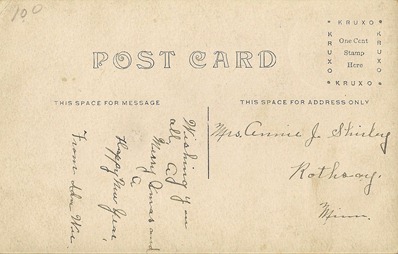 100
KRUXO
KRUXO
KRUXO
KRUXO
One Cent
Stamp
Here
POST CARD
THIS SPACE FOR MESSAGE
THIS SPACE FOR ADDRESS ONLY
Wishing you
all a
Merry Xmas and
a
Happy New Year,
From
Mrs. Annie J. Shirley
Rothsay.
Minn.